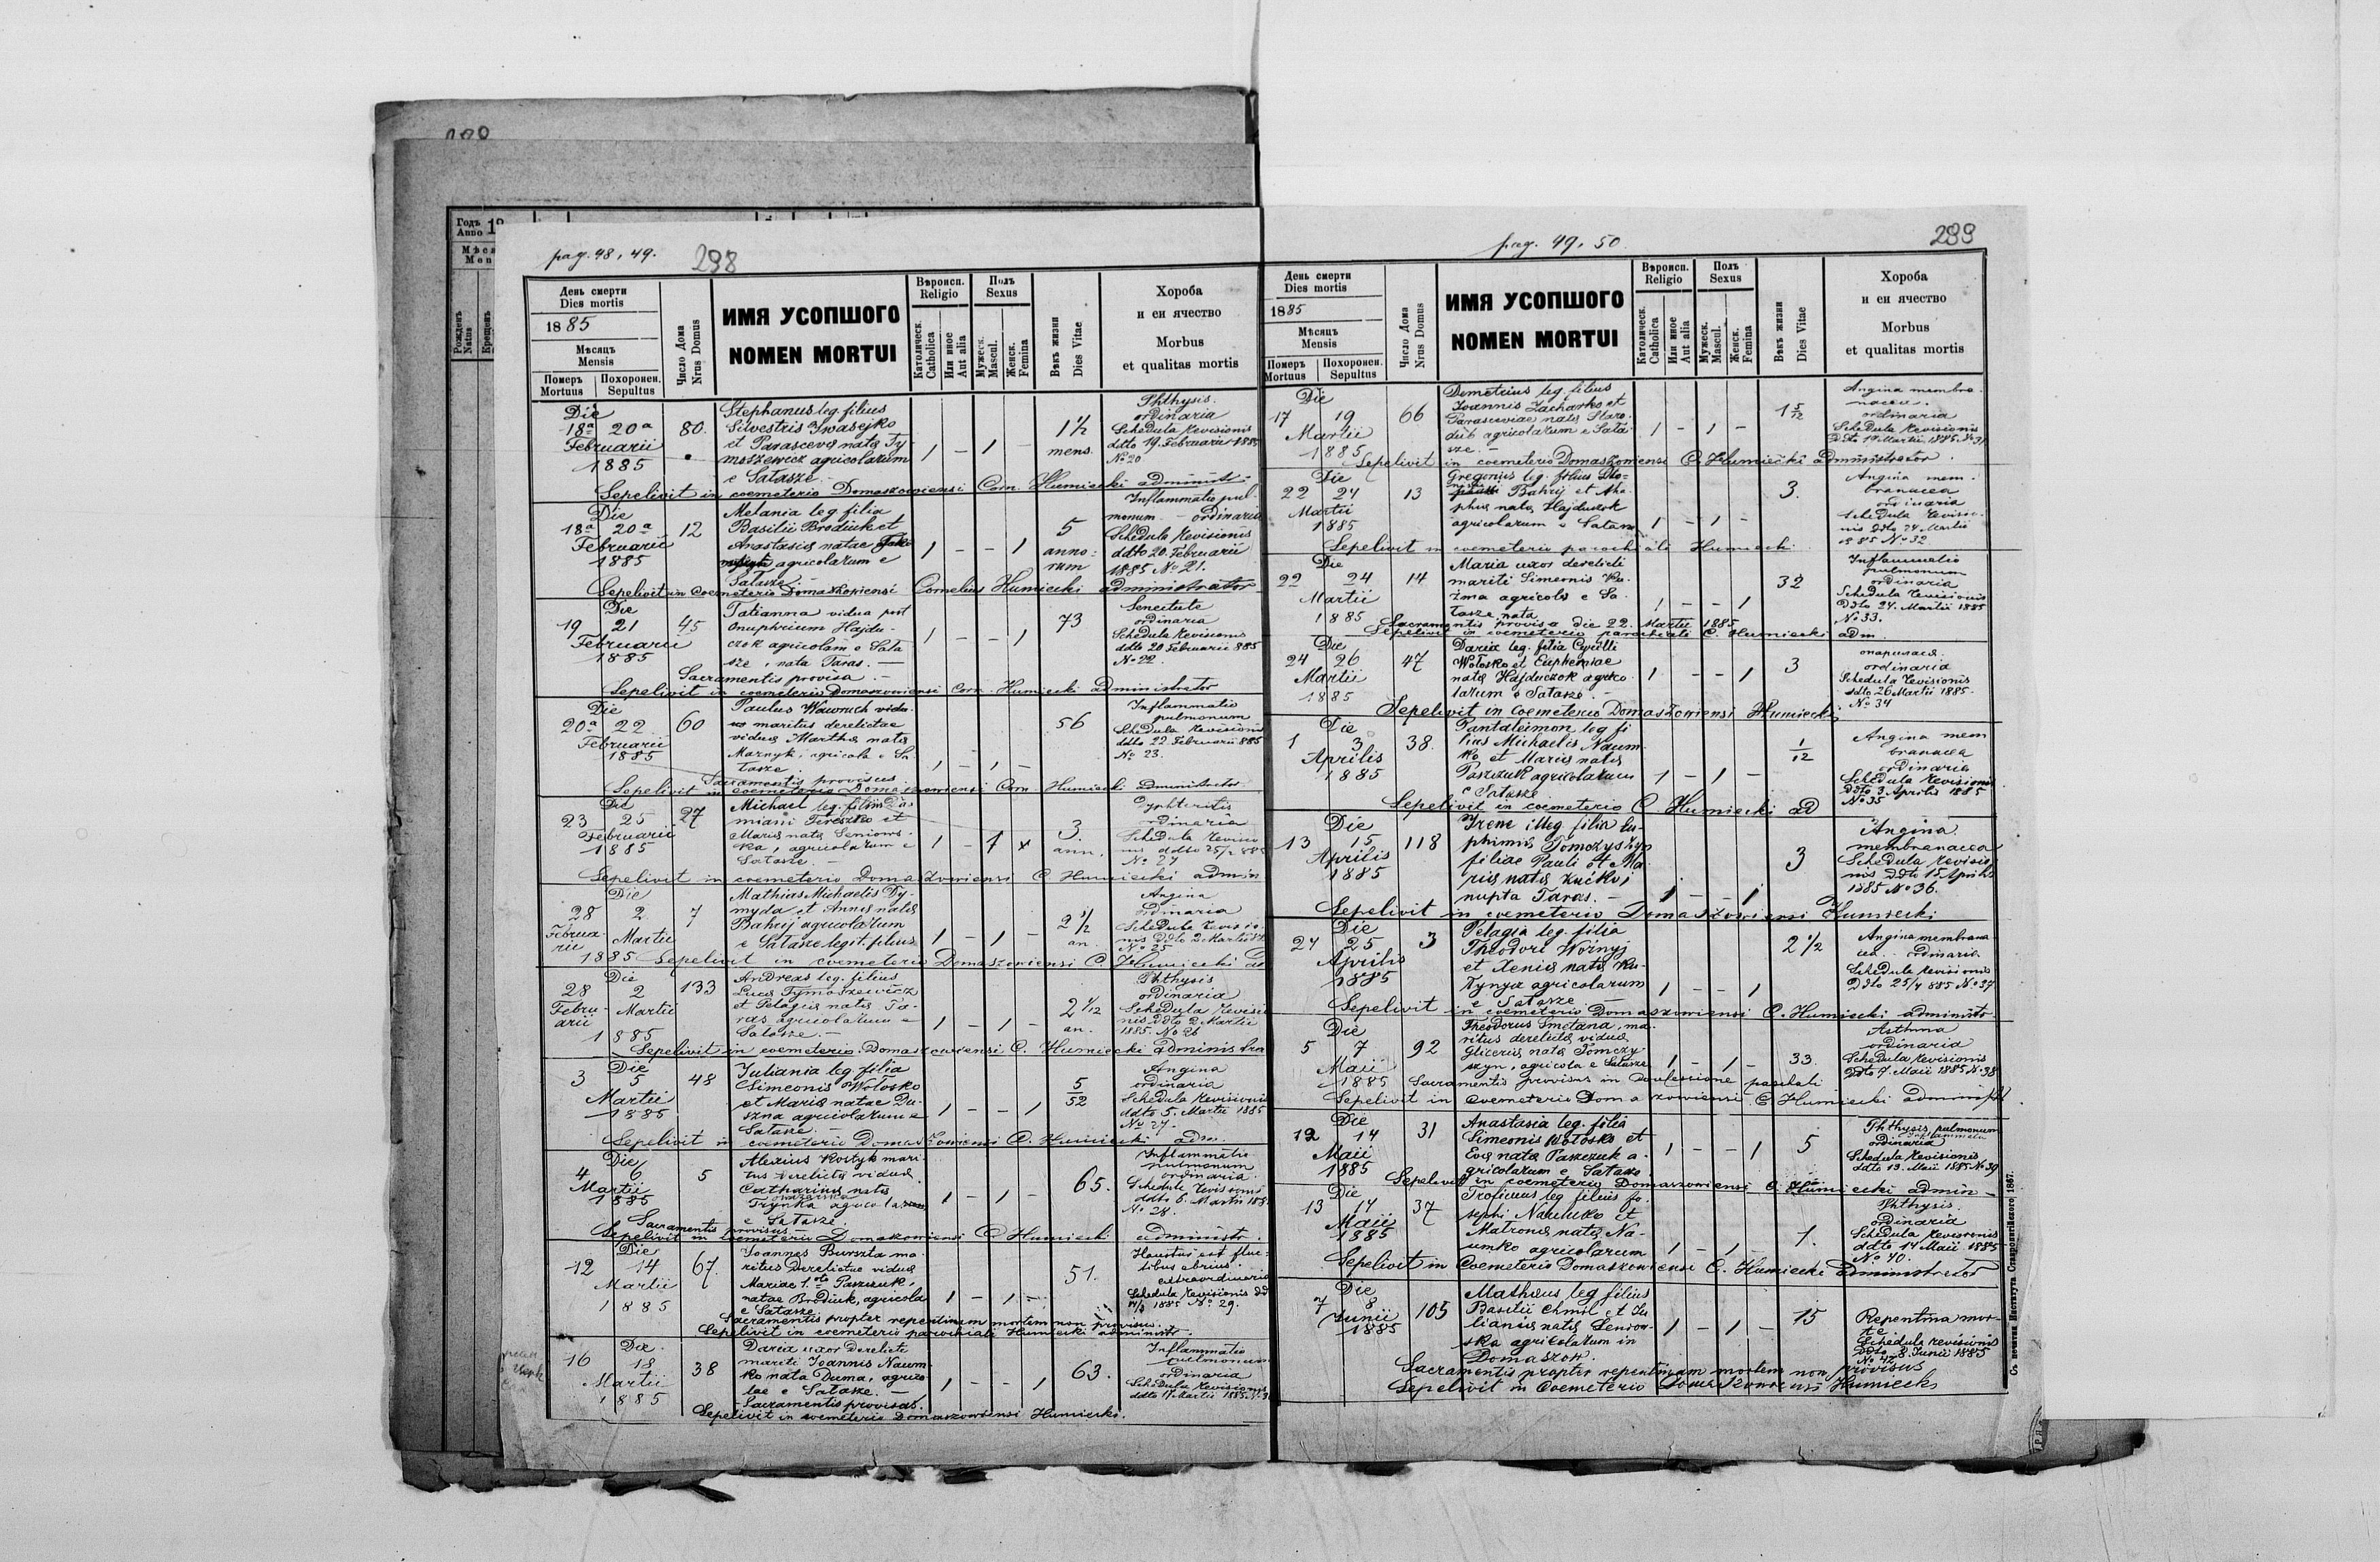 pag. 48, 49.
298
День смерти
Dies mortis
1885
Мѣсяць
Mensis
Померъ
Mortuus
Похоронен.
Sepultus
Число Дома
Nrus Domus
ИМЯ УСОПШОГО
NOMEN MORTUI
Вѣроисп.
Religio
Католическ.
Catholica
Или иное
Aut alia
Полъ
Sexus
Мужеск.
Mascul.
Женск.
Femina
Вѣкъ жизни
Dies Vitae
Хороба
и еи ячество
Morbus
et qualitas mortis
Die
18a 20a
Februarii
1885
80.
Stephanus leg. filius
Silvestris Iwasejko
et Parasceva nata Ty-
moszewicz agricolarum
e Satasze.
1 - 1 -
1½
mens.
Phthysis.
ordinaria
Schedula Revisionis
ddto 19. Februarii 1885
No 20
Sepelivit in coemeterio Domaszowiensi Corn. Humiecki administr.
Die
18a 20a
Februarii
1885
12
Melania leg. filia
Basilii Brodiuk et
Anastasia natae
agricolarum e
Satasze.
1 - - 1
5
anno-
rum
Inflammatio pul-
monum. - ordinaria
Schedula Revisionis
ddto 20. Februarii
1885 No 21.
Sepelivit in coemeterio Domaszowiensi Cornelius Humiecki administrator
Die
19 21
Februarii
1885
45
Tatianna vidua post
Onuphrium Hajdu-
czok agricolam e Sata
sze, nata Taras. —
Sacramentis provisa. —
1 - - 1
73
Senectute
ordinaria
Schedula Revisionis
ddto 20 Februarii 885
No 22.
Sepelivit in coemeterio Domaszowiensi Corn. Humiecki administrator
Die
20a 22
Februarii
1885
60
Paulus Wawruch
maritus derelictae
vidua Martha nata
Maznyk, agricola e Sa-
tasze.
1 - 1 -
56
Inflammatio
pulmonum
Schedula Revisionis
ddto 22. Februarii 885
No 23.
Sacramentis provisus
Sepelivit in coemeterio Domaszowiensi Corn. Humiecki administrator
Die
23 25
Februarii
1885
27
Michael leg. filius Da-
miani Tereszko et
Maria nata Seniows-
ka, agricolarum e
Satasze. —
1 - 1 x
3.
ann.
ordinaria
Schedula Revisio
nis ddto 25/2 885
No 24
Sepelivit in coemeterio Domaszowiensi C Humiecki admin
Die
28 2
Februa-
rii Martii
1885
7
Mathias Michaelis Dy-
myda et Anna nata
Bahrij agricolarum
e Satasze legit. filius
1 - 1 -
2½
an.
Angina
ordinaria
Schedula Revisio-
nis ddto 2 Martii
No 25
Sepelivit in coemeterio Domaszowiensi C. Humiecki ad
Die
28 2
Febru- Martii
arii
1885
133
Andreas leg. filius
Luca Tymoszewicz
et Pelagia nata Ta-
ras agricolarum e
Satasze
1 - 1 -
2 1/12
an.
Phthysis
ordinaria
Schedula Revisio
nis ddto 2 Martii
1885. No 26
Sepelivit in coemeterio Domaszowiensi C. Humiecki administra
Die
3 5
Martii
1885
48
Juliania leg. filia
Simeonis Wołosko
et Maria natae Du-
szna agricolarum e
Satasze. —
1 - - 1
5/52
Angina
ordinaria
Schedula Revisionis
ddto 5. Martii 1885
No 27.
Sepelivit in coemeterio Domaszowiensi C. Humiecki adm.
Die
4 6
Martii
1885
5
Alexius Kostyk mari-
tus derelicta vidua
Catharina nata
Hrynka agricola
e Satasze.
1 - 1 -
65.
Inflammatio
pulmonum
ordinaria
Schedula Revisionis
ddto 6. Martii 188
No 28.
Sacramentis provisus
Sepelivit in coemeterio Domaszowiensi C Humiecki administr.
Die
12 14
Martii
1885
67.
Joannes Burszta ma-
ritus derelictae vidua
Mariae 1. oto Paszczuk,
natae Brodiuk, agricola
e Satasze
1 - 1 -
51.
Haustus est fluc-
tibus ebrius.
extraordinaria
Schedula Revisionis dd
1885 No 29.
Sacramentis propter repentinam mortem non provisus.
Sepelivit in coemeterio parochiali Humiecki administr.
Die
16 18
Martii
1885
38
Daria uxor derelicti
mariti Joannis Naum-
ko nata Duma, agrico
lae e Satasze. —
Sacramentis provisa.
1 - - 1
63.
Inflammatio
pulmonum
ordinaria
Schedula Revisionis
ddto 17 Martii 1885
Sepelivit in coemeterio Domaszowiensi Humiecki.
pag. 49, 50.
299
День смерти
Dies mortis
1885
Мѣсяць
Mensis
Померъ
Mortuus
Похоронен.
Sepultus
Число Дома
Nrus Domus
ИМЯ УСОПШОГО
NOMEN MORTUI
Вѣроисп.
Religio
Католическ.
Catholica
Или иное
Aut alia
Полъ
Sexus
Мужеск.
Mascul.
Женск.
Femina
Вѣкъ жизни
Dies Vitae
Хороба
и еи ячество
Morbus
et qualitas mortis
Die
17 19
Martii
1885
66
Demetrius leg. filius
Joannis Zacharko et
Parasceviae nata Staro-
dub agricolarum e Sata-
sze. —
1 - 1 -
1 5/12
Angina membra-
nacea.
ordinaria
Schedula Revisionis
Ddto 19 Martii 1885. No 31
Sepelivit in coemeterio Domaszowiensi C. Humiecki administrator.
Die
22 24
Martii
1885
13
Gregorius leg. filius
Bahrij et Aha-
phia nata Hajduczok
agricolarum e Satasze
1 - 1 -
3.
Angina mem-
branacea
ordinaria
Schedula Revisio-
nis ddto 24 Martii
1885 No 32
Sepelivit in coemeterio parochiali Humiecki
Die
22 24
Martii
1885
14
Maria uxor derelicti
mariti Simeonis Ku-
źma agricola e Sa-
tasze nata
1 - - 1
32
Inflammatio
pulmonum
ordinaria
Schedula Revisionis
Ddto 24. Martii 1885
No 33.
Sacramentis provisa die 22. Martii 1885
Sepelivit in coemeterio parochiali C. Humiecki adm
Die
24 26
Martii
1885
47
Daria leg. filia Cyrilli
Wołosko et Euphemiae
nata Hajduczok agrico-
larum e Satasze. —
1 - - 1
3
ordinaria
Schedula Revisionis
ddto 26 Martii 1885.
No 34
Sepelivit in Coemeterio Domaszowiensi Humiecki
Die
1 3
Aprilis
1885
38.
Pantaleimon leg fi
lius Michaelis Naum-
ko et Maria nata
Paszczuk agricolarum
e Satasze
1 - 1 -
1/12
Angina mem
branacea
ordinaria
Schedula Revisionis
Ddto 3 Aprilis 1885
No 35
Sepelivit in coemeterio C. Humiecki ad
Die
13 15
Aprilis
1885
118
Irene illeg. filia Eu-
phimia Tomczyszyn
filiae Pauli et Ma-
ria nata
nupta Taras. —
1 - - 1
3
Angina
membranacea
Schedula Revisio
nis Ddto 15 Aprilis
1885 No 36.
Sepelivit in coemeterio Domaszowiensi Humiecki
Die
24 25
Aprilis
1885
3
Pelagia leg. filia
Theodori Woźnyj
et Xenia nata Ku-
agricolarum
e Satasze
1 - - 1
2 1/2
Angina membrana
cea. ordinaria
Schedula Revisionis
Ddto 25/4 885 No 37
Sepelivit in coemeterio Domaszowiensi C. Humiecki administr.
Die
5 7
Maii
1885
92
Theodorus Smetana, ma-
ritus derelicta vidua
Gliceria nata Tomczy-
szyn, agricola e Satasze
1 - 1 -
33.
Asthma
ordinaria
Schedula Revisionis
Ddto 7 Maii 1885 No 38
Sacramentis provisus in Confessione paschali
Sepelivit in Coemeterio Domaszowiensi C Humiecki administr.
Die
12 14
Maii
1885
31
Anastasia leg. filia
Simeonis Wołosko et
Eva nata Paszczuk a-
gricolarum e Satasze
1 - - 1
5
Phthysis pulmonum
ordinaria
Schedula Revisionis
ddto 13. Maii 1885 No 39
Sepelivit in coemeterio Domaszowiensi C. Humiecki admin -
Die
13 14
Maii
1885
37
Trofimus leg filius Jo-
sephi Naumko et
Matrona nata Na-
umko agricolarum
1 - 1 -
1.
Phthysis.
ordinaria
Schedula Revisionis
ddto 14 Maii 1885
No 40.
Sepelivit in Coemeterio Domaszowiensi C. Humiecki administrator
Die
7 8
Junii
1885
105
Matheus leg filius
Basilii Chmil et Ju
lianna nata Seniow-
ska agricolarum in
Domaszow.
1 - 1 -
15
Repentina mor-
te
Schedula revisionis
ddto 8. Junii 1885
No 42
Sacramentis propter repentinam mortem non provisus
Sepelivit in Coemeterio Domaszowiensi Humiecki
Съ печатни Института Ставропигійского 1867.
Годъ
Anno
Рожденъ
Natus
Крещенъ